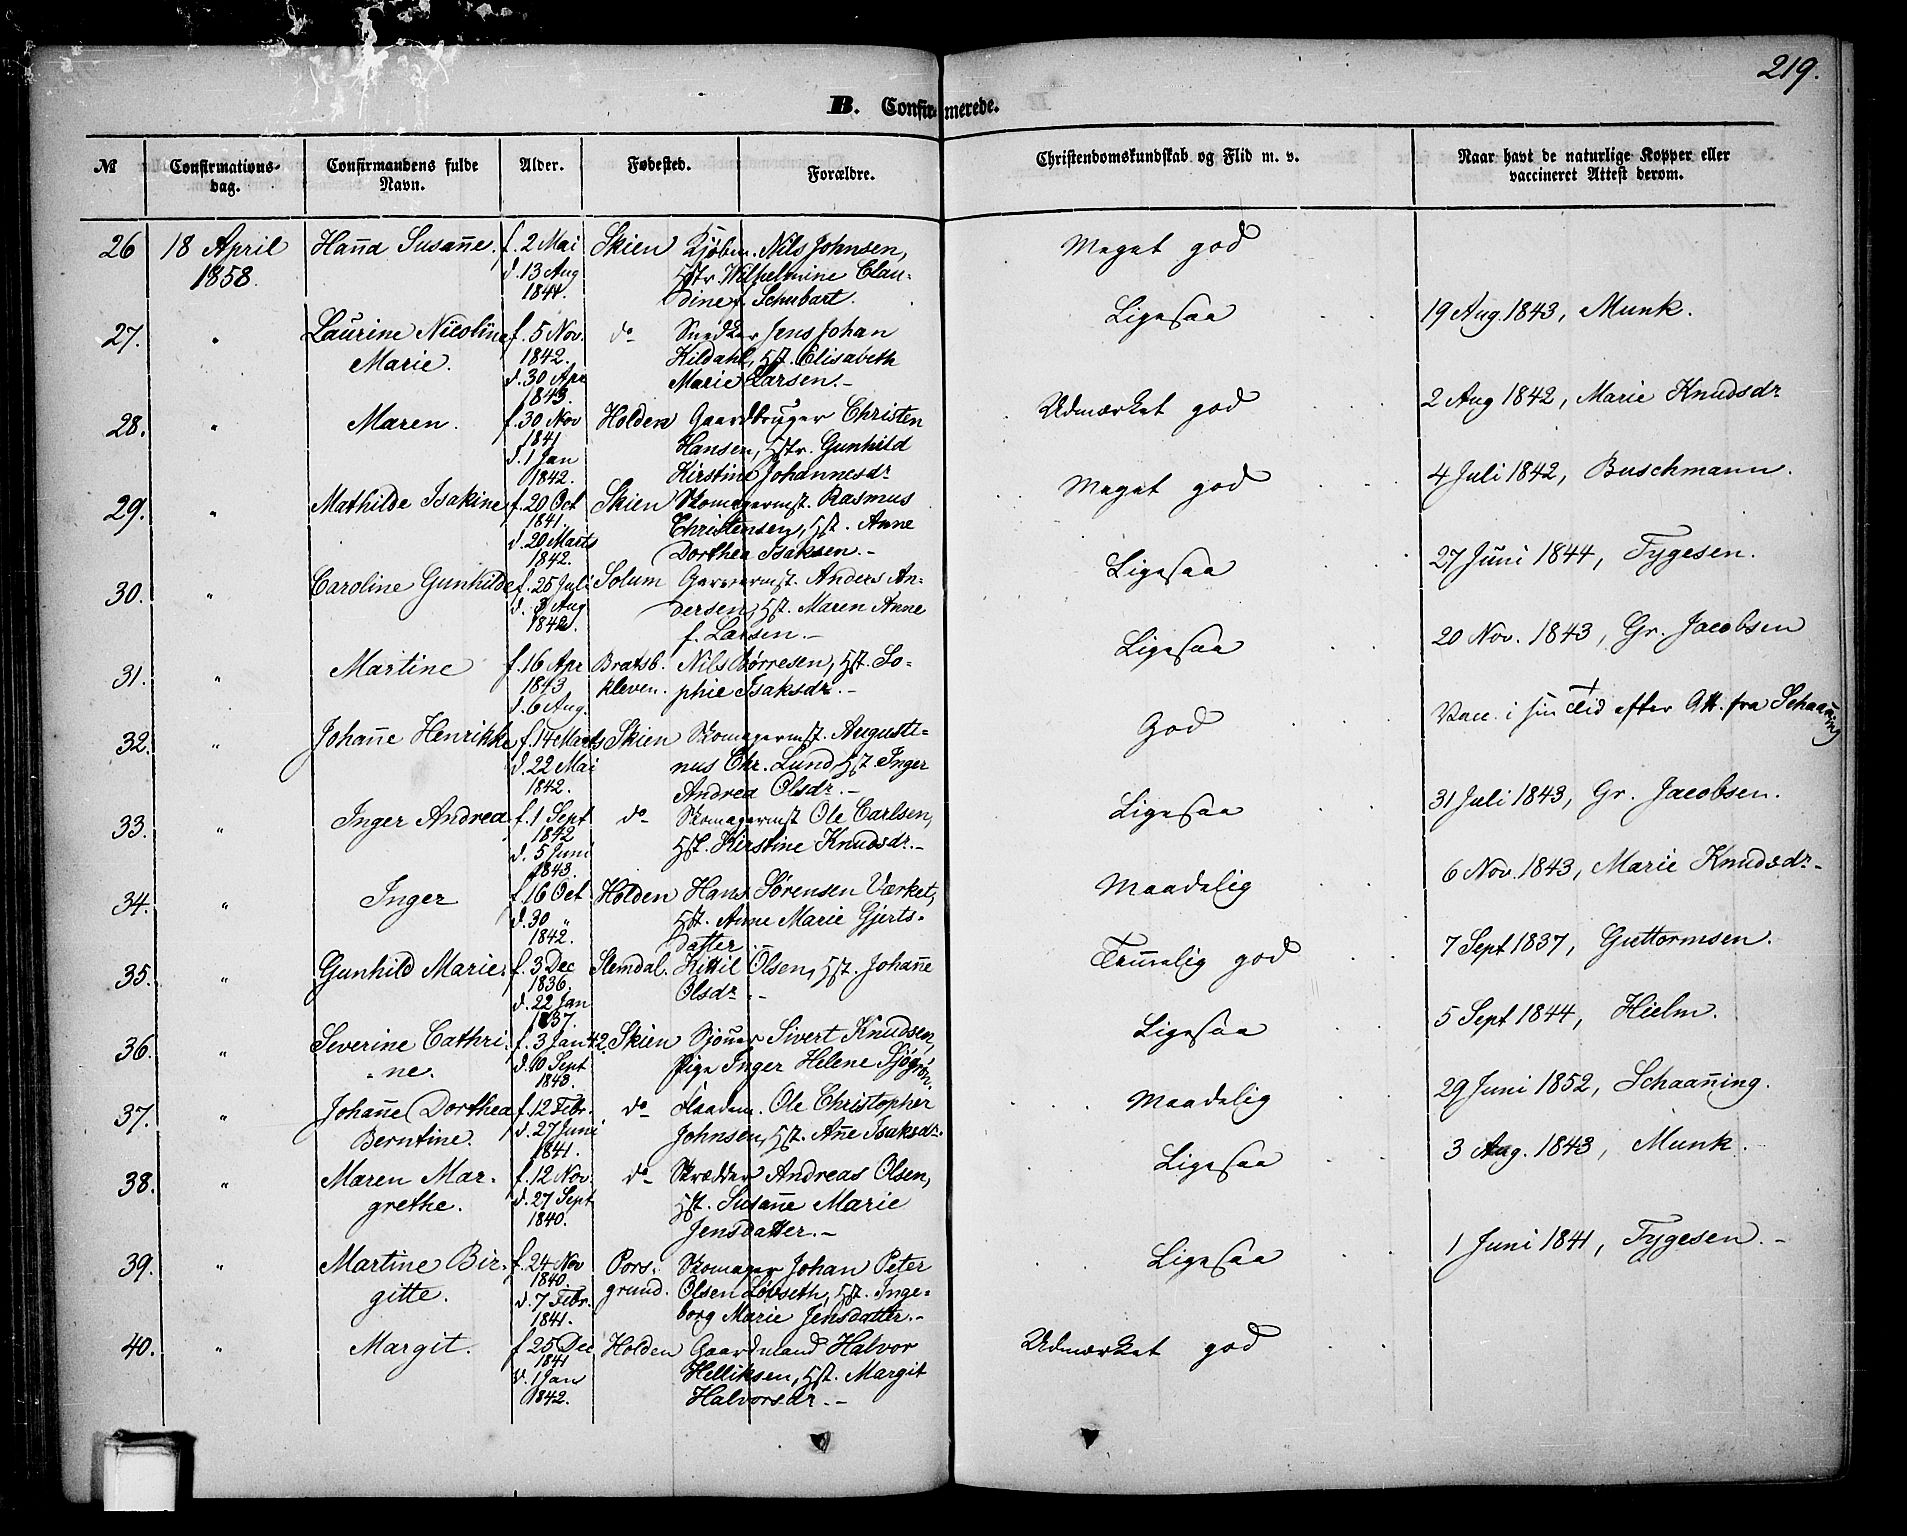 219.
B. Confirmerede.
№ Confirmations-dag. Confirmandens fulde Navn. Alder. Fødested. Forældre. Christendomskundskab og Flid m. v. Naar havt de naturlige Kopper eller vaccineret Attest derom.
26 18 April Hanna Susanne, f. 2 Mai Skien Kjøbm. Nils Johnsen, Meget god
1858. d. 13 Aug Hstr. Wilhelmine Clau-
1841. dine f. Schubart.
27. " Laurine Nicoline f. 5 Nov. do Snedker Jens Johan Ligesaa 19 Aug. 1843, Munk.
Marie. 1842. Kildahl, Hst. Elisabeth
d. 30 Apr Marie Larsen.-
1843.
28. " Maren. f. 30 Nov Holden Gaardbruger Christen Udmærket god 2 Aug 1842, Marie Knudsdr
1841 Hansen, Hstr. Gunhild
d. 1 Jan Kirstine Johannesdr
1842.
29. " Mathilde Isakine f. 20 Oct Skien Skomagermst. Rasmus Meget god 4 Juli 1842, Buschmann.
1841. Christensen, Hst. Anne
d. 20 Marts Dorthea Isaksen.-
1842.
30. " Caroline Gunhilde f. 25 Juli Solum Garvermst. Anders An- Ligesaa 27 Juni 1844, Tygesen.
d. 8 Aug dersen, Hst. Maren Anne
1842. f. Larsen.-
31. " Martine f. 16 Apr Bratsb. Nils Børresen, Hst. So- Ligesaa 20 Nov. 1843, Gr. Jacobsen
1843 kleven. phie Isaksdr.-
d. 6 Aug.
32. " Johanne Henrikke f. 14 Marts Skien Skomagermst. Augusti- God Vacc. i sin Tid efter Att. fra Schaanning
d. 22 Mai nus Chr. Lund, Hst Inger
1842. Andrea Olsdr.-
33. " Inger Andrea. f. 1 Sept do Skomagermst Ole Carlsen, Ligesaa 31 Juli 1843, Gr. Jacobsen.
1842 Hst. Kirstine Knudsdr.-
d. 5 Juni
1843.
34. " Inger f. 16 Oct Holden Hans Sørensen Værket, Maadelig 6 Nov. 1843, Marie Knudsdr-
d. 30 " Hst. Anne Marie Gjerts-
1842. datter.-
35. " Gunhild Marie. f. 3 Dec Slemdal. Kittil Olsen, Hst. Johanne Temmelig god 7 Sept 1837, Guttormsen.
1836. Olsdr.-
d. 22 Jan
1837.
36. " Severine Cathri- f. 3 Jan 42. Skien Sjouer Sivert Knudsen, Ligesaa 5 Sept 1844, Hielm.
ne. d. 10 Sept Pige Inger Helene
1843.
37. " Johanne Dorthea f. 12 Febr. do Ole Christopher Maadelig 29 Juni 1852, Schaanning.
Berntine. d. 27 Juni Johnsen, Hst. Anne Isaksdr.
1841.
38. " Maren Mar- f. 12 Nov. do Skrædder Andreas Olsen, Ligesaa 3 Aug. 1843, Munk.
grethe. d. 27 Sept Hst. Susanne Marie
1840. Jensdatter.-
39. " Martine Bir- f. 24 Nov Pors- Skomager Johan Peter Ligesaa 1 Juni 1841, Tygesen.-
gitte. 1840. grund. Olsen Løvseth, Hst. Inge-
d. 7 Febr. borg Marie Jensdatter.-
1841.
40. " Margit. f 25 Dec Holden Gaardmand Halvor Udmærket god
1841 Helliksen, Hst. Margit
d. 1 Jan Halvorsdr.-
1842.